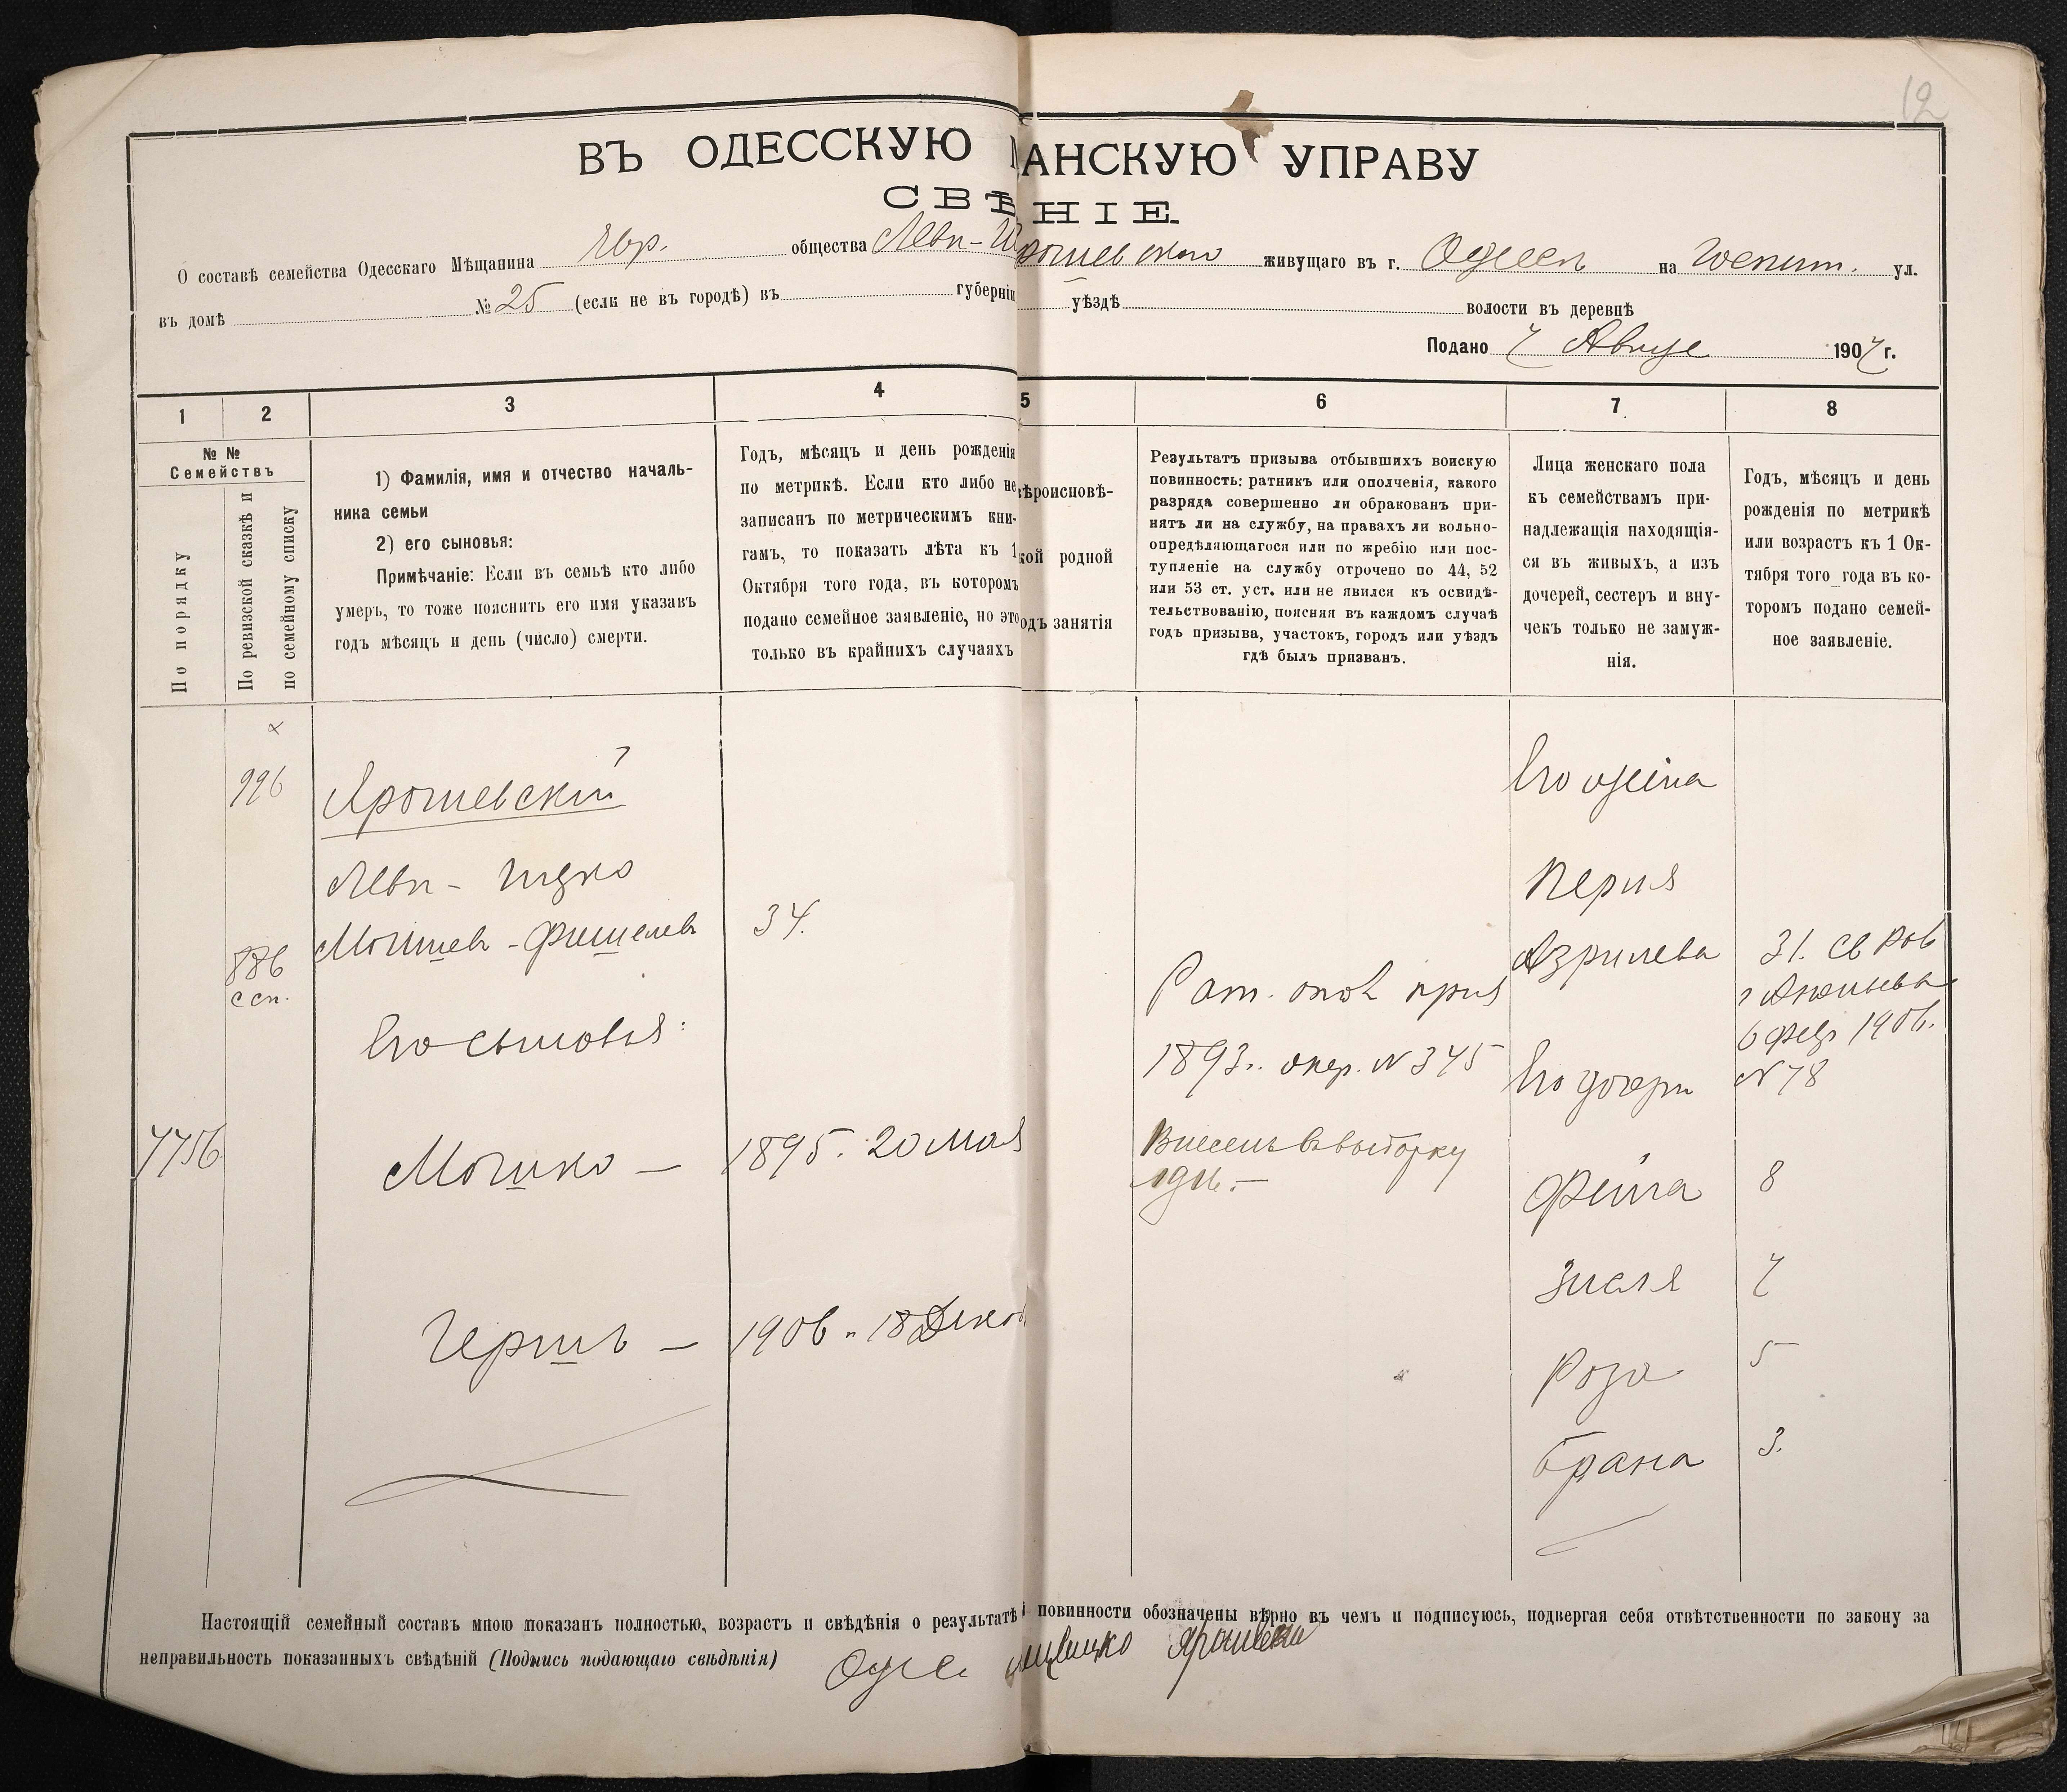 12
ВЪ ОДЕССКУЮ АНСКУЮ УПРАВУ
СВѢНІЕ
О составѣ семейства Одесскаго Мѣщанина Евр. общества живущаго въ г. Одессѣ на Госпит. ул.
въ домѣ № 25 (если не въ городѣ) въ губерніи уѣздѣ волости въ деревнѣ
Подано 7 Авгус 1907 г.
1 2 3 4 5 6 7 8
№ №
Семействъ
По порядку
По ревизской сказкѣ и
по семейному списку
1) Фамилія, имя и отчество началь-
ника семьи
2) его сыновья:
Примѣчаніе: Если въ семьѣ кто либо
умеръ, то тоже пояснить его имя указавъ
годъ мѣсяцъ и день (число) смерти.
Годъ, мѣсяцъ и день рожденія
по метрикѣ. Если кто либо не
записанъ по метрическимъ кни-
гамъ, то показать лѣта къ 1
Октября того года, въ которомъ
подано семейное заявленіе, но это
только въ крайнихъ случаяхъ
ѣроисповѣ-
кой родной
одъ занятія
Результатъ призыва отбывшихъ воискую
повинность: ратникъ или ополченія, какого
разряда совершенно ли обракованъ при-
нятъ ли на службу, на правахъ ли вольно-
опредѣляющагося или по жребію или пос-
тупленіе на службу отрочено по 44, 52
или 53 ст. уст. или не явился къ освидѣ-
тельствованію, поясняя въ каждомъ случаѣ
годъ призыва, участокъ, городъ или уѣздъ
гдѣ былъ призванъ.
Лица женскаго пола
къ семействамъ при-
надлежащія находящія-
ся въ живыхъ, а изъ
дочерей, сестеръ и вну-
чекъ только не замуж-
нія.
Годъ, мѣсяцъ и день
рожденія по метрикѣ
или возрастъ къ 1 Ок-
тября того года въ ко-
торомъ подано семей-
ное заявленіе.
996
Ярошевскій
Мошков-Фишелев
34.
886
ссп.
Его сыновья:
7756
Мошко — 1895. 20 мая
Гершъ — 1906 " 18 Декаб
Рат. опол приз
1893г. окр. N 345
Внесенъ въ выборку
1916. —
Его жена
Перля
Азрилева
31. св рав
г Ананьева
6 Фев 1906.
N 78
Его дочери
Фейга 8
Зисля 7
Роза 5
Брана 3.
Настоящій семейный составъ мною показанъ полностью, возрастъ и свѣдѣнія о результатѣ і повинности обозначены вѣрно въ чемъ и подписуюсь, подвергая себя отвѣтственности по закону за
неправильность показанныхъ свѣдѣній (Подпись подающаго свѣдѣнія)